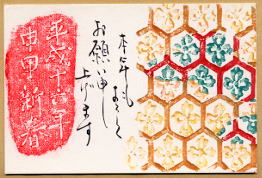 本年も
よろしく
お願い申し
上げます
平成十六年
甲申 新春